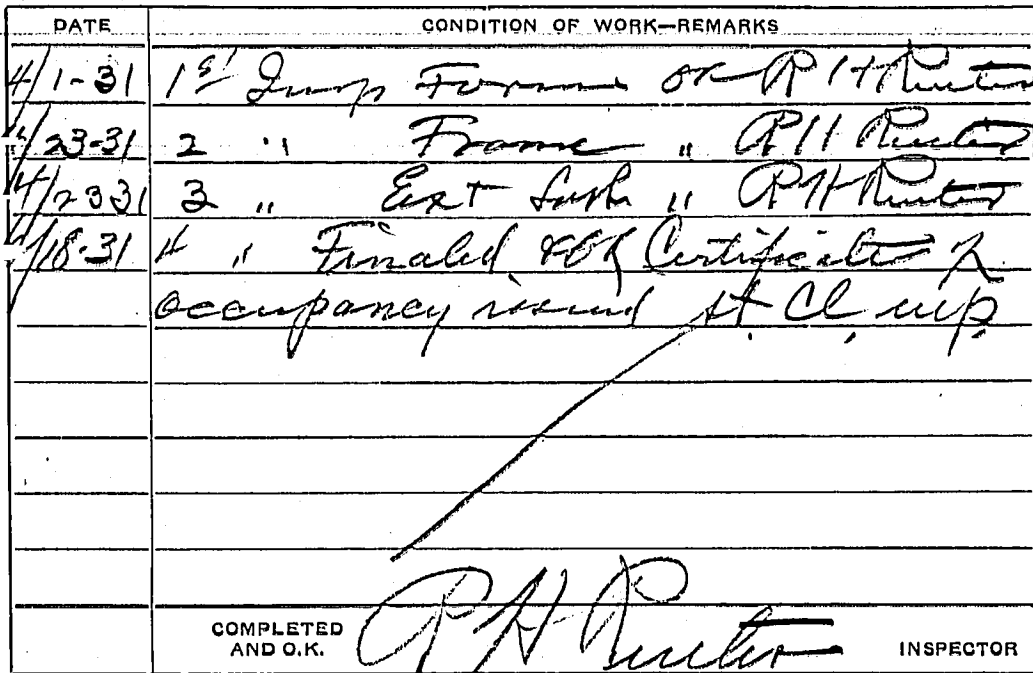 DATE CONDITION OF WORK—REMARKS
4/1-31 1st Insp Forms OK R H Reuter
4/23-31 2 " Frame " R H Reuter
4/23 31 3 " Ext Lath " R H Reuter
/18-31 4 " Finaled Certificate of
occupancy issued St. Cl.
COMPLETED
AND O.K. R H Reuter INSPECTOR